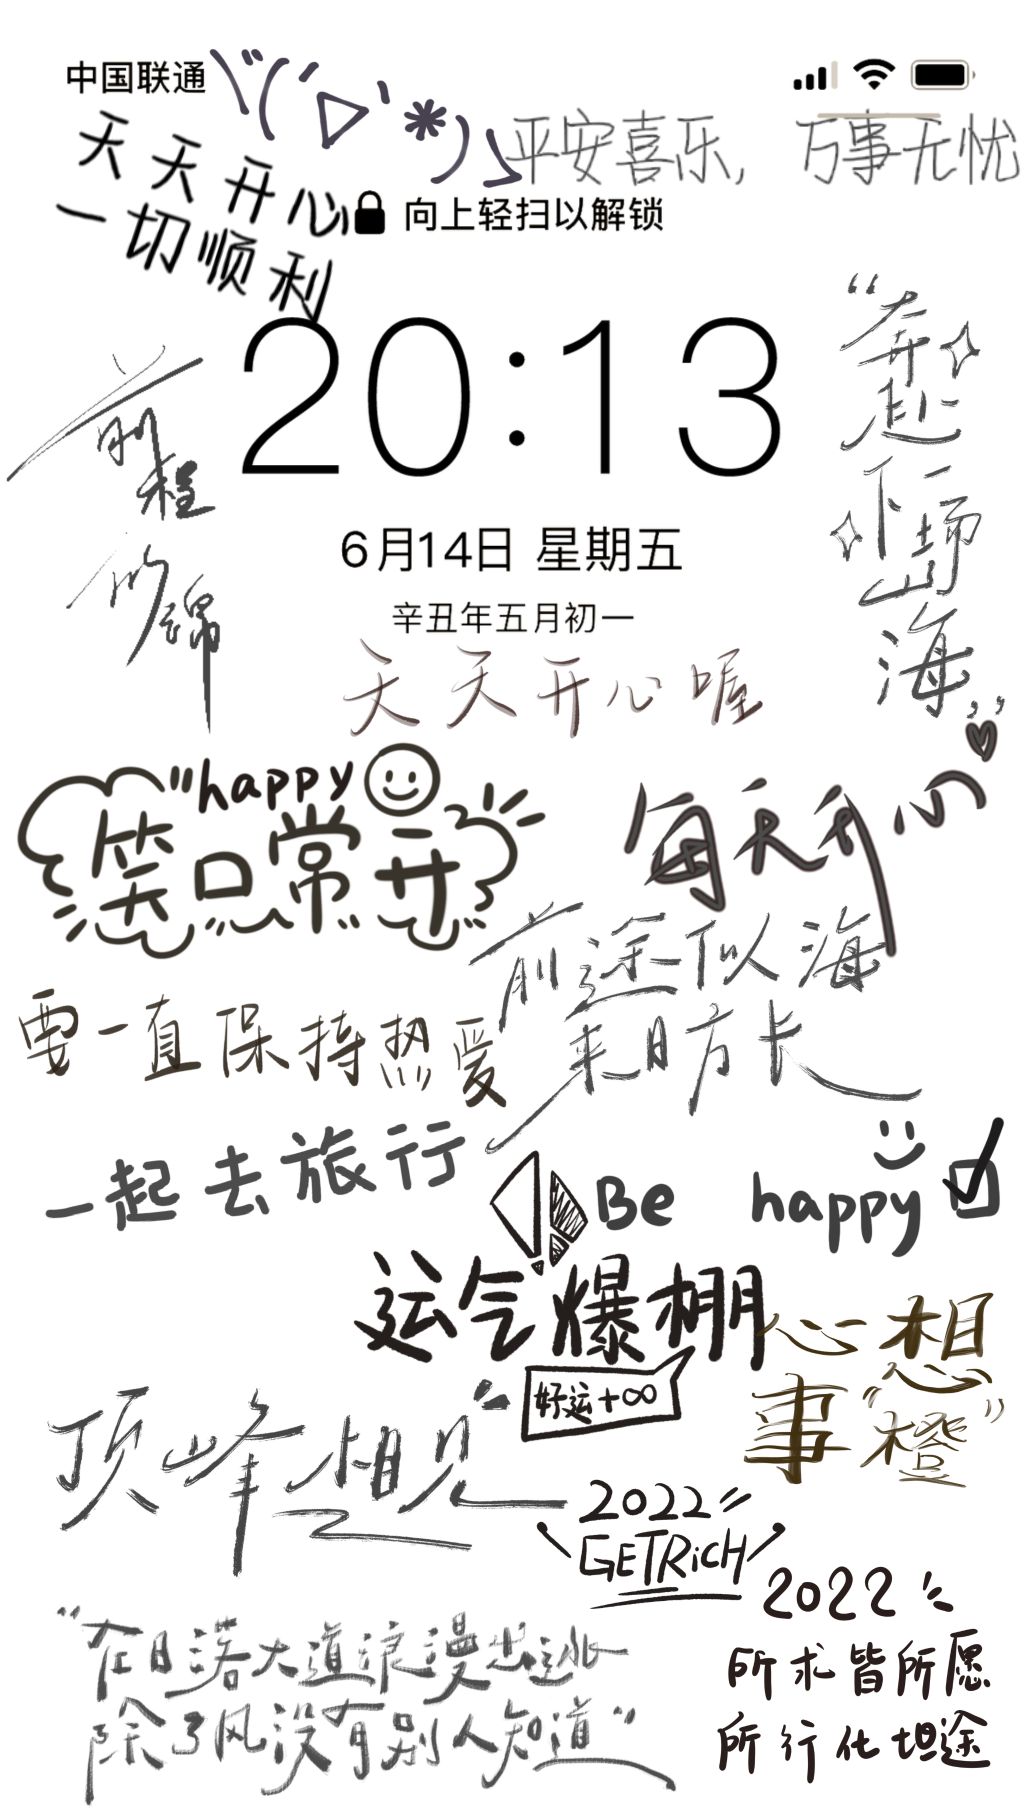 中国联通
平安喜乐, 万事无忧
天天开心
一切顺利
向上轻扫以解锁
20:13
6月14日 星期五
辛丑年五月初一
前程
似锦
“奔赴
下一场
山海”
天天开心喔
"happy
笑口常开
每天开心
前途似海
来日方长
要一直保持热爱
一起去旅行
Be happy
运气爆棚
好运+∞
心想
事“橙”
顶峰相见
2022
GETRICH
2022
所求皆所愿
所行化坦途
“在日落大道浪漫出逃
除了风没有别人知道”